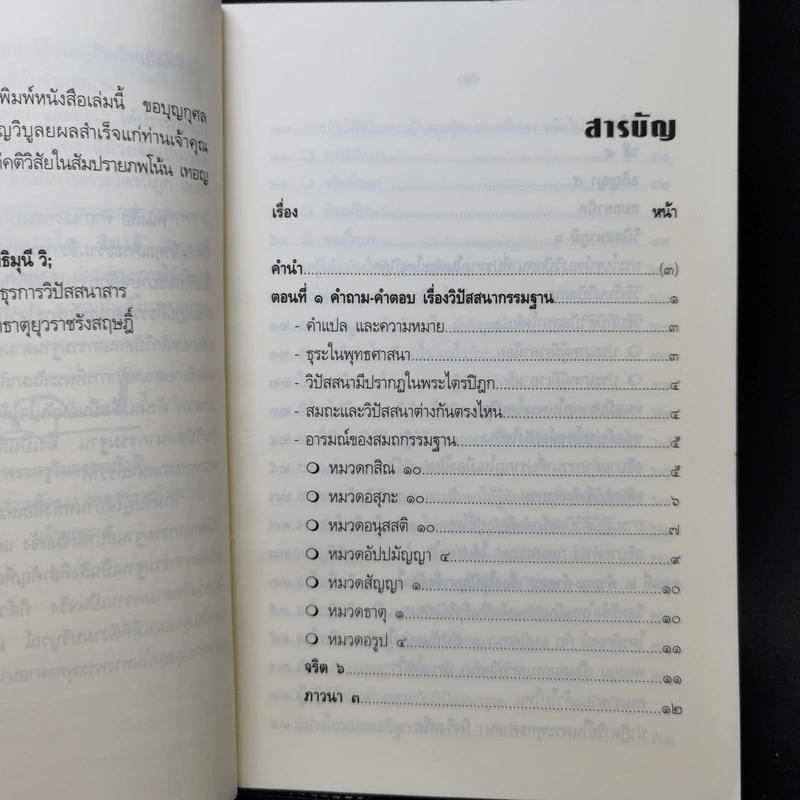 พิมพ์หนังสือเล่มนี้ ขอบุญกุศล
ญวิบูลยผลสำเร็จแก่ท่านเจ้าคุณ
คติวิสัยในสัมปรายภพโน้น เทอญ
ธิมุนี วิ;
ธุรการวิปัสสนาสาร
ธาตุยุวราชรังสฤษฎิ์
สารบัญ
เรื่อง หน้า
คำนำ (๓)
ตอนที่ ๑ คำถาม-คำตอบ เรื่องวิปัสสนากรรมฐาน ๑
- คำแปล และความหมาย ๓
- ธุระในพุทธศาสนา ๓
- วิปัสสนามีปรากฏในพระไตรปิฎก ๔
- สมถะและวิปัสสนาต่างกันตรงไหน ๔
- อารมณ์ของสมถกรรมฐาน ๕
❍ หมวดกสิณ ๑๐ ๕
❍ หมวดอสุภะ ๑๐ ๖
❍ หมวดอนุสสติ ๑๐ ๗
❍ หมวดอัปปมัญญา ๔ ๙
❍ หมวดสัญญา ๑ ๑๐
❍ หมวดธาตุ ๑ ๑๐
❍ หมวดอรูป ๔ ๑๑
จริต ๖ ๑๑
ภาวนา ๓ ๑๒